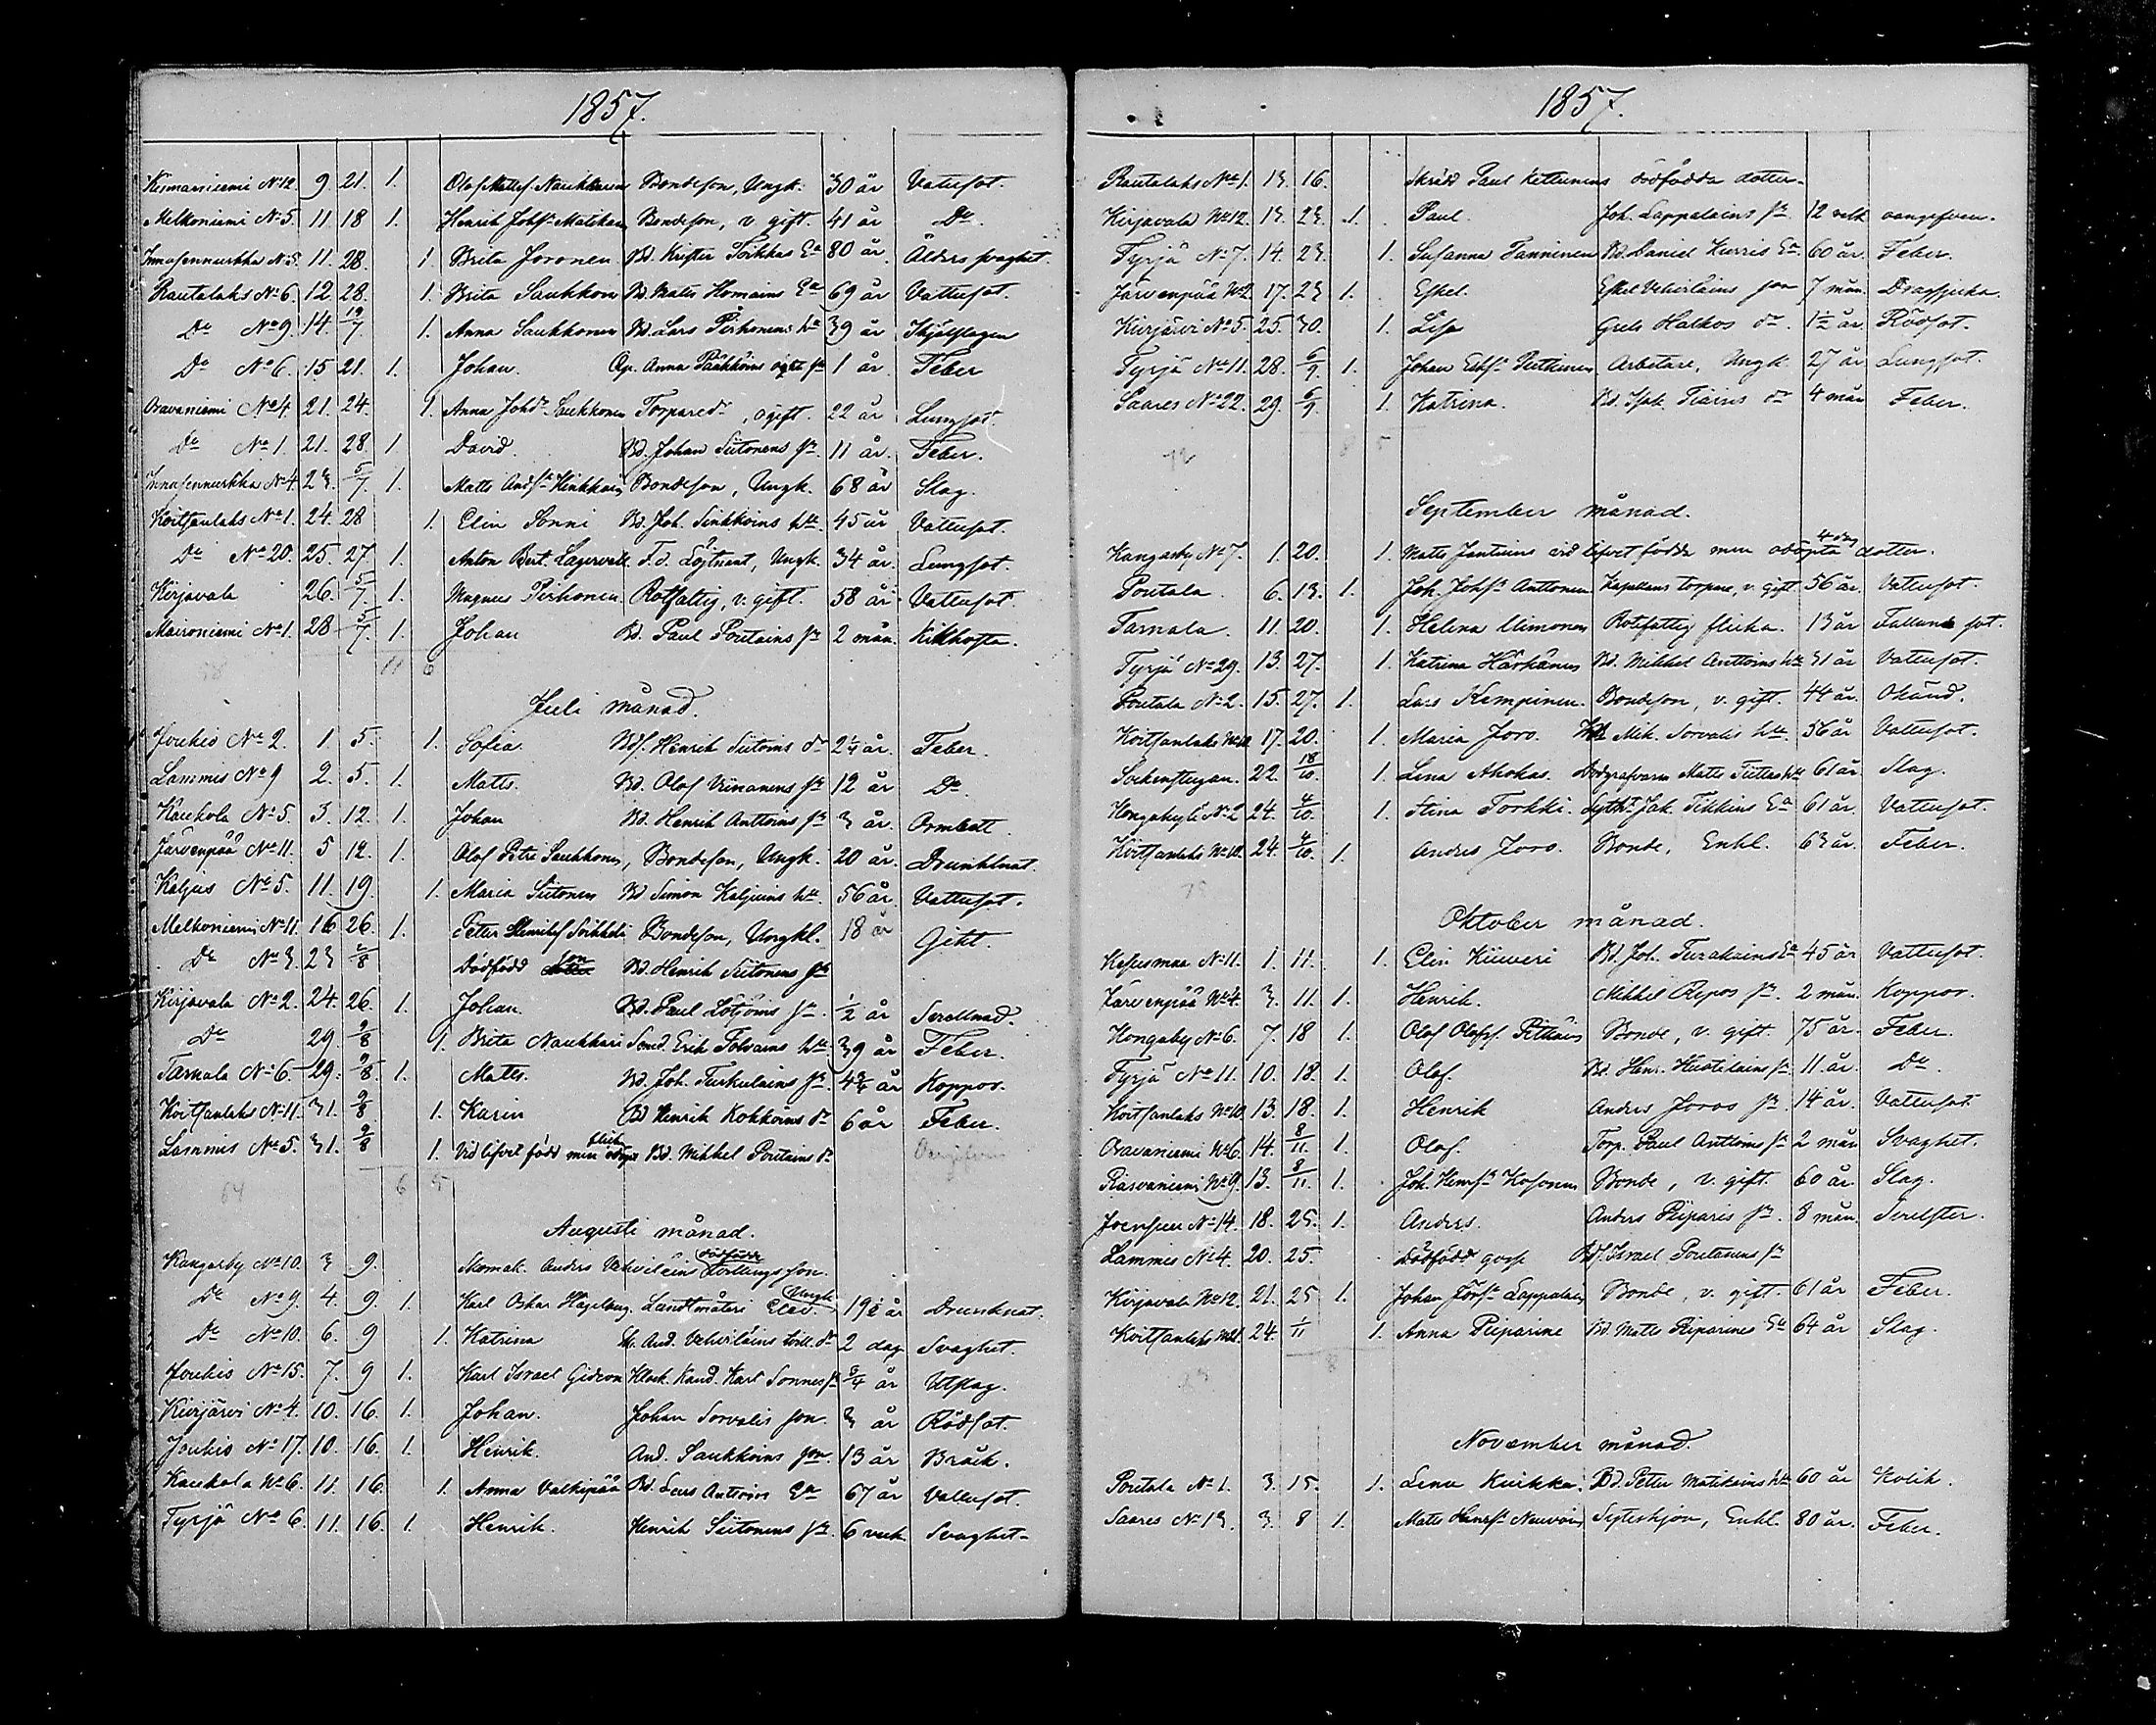 1857.
Kesmaniemi No 12. 9. 21. 1. Olof Mattss. Naukkarin Bondeson, Ungk. 30 år Vatusot.
Melkoniemi No 5. 11. 18 1. Henrik Johss. Matikan Bondeson, v. gift. 41 år Do.
Innasennurkka No 5. 11. 28. 1. Brita Joronen. Bd. Krister Toikkas Ea 80 år Ålders svaghet.
Rautalaks No 6. 12. 28. 1. Brita Saukkon Bd. Matts Homains Ea 69 år Vattusot.
Do No 9. 14. 19/7. 1. Anna Saukkonen Bd. Lars Pirhonens hu 39 år Ihjälslagen
Do No 6. 15. 21. 1. Johan. Anna Pääkköins oäkta sn 1 år Feber
Oravaniemi No 4. 21. 24. 1. Anna Johdr Saukkonen Torparedr, ogift. 22 år Lungsot.
Do No 1. 21. 28. 1. David. Bd. Johan Siitonens sn 11 år. Feber.
Innasennurkka No 4. 23. 5/7. 1. Matts Andsn Hinkkain Bondeson, Ungk. 68 år Slag.
Koitsanlaks No 1. 24. 28 1. Elin Sonni Bd. Joh. Sinkkoins hu. 45 år Vattusot.
Do No 20. 25. 27. 1. Anton Bert. Lagervall F.d. Löjtnant, Ungk. 34 år. Lungsot.
Kirjavala 26. 5/7. 1. Magnus Pirhonen. Rotfattig, v. gift. 58 år. Vattusot.
Maironiemi No 1. 28 5/7. 1. Johan Bd. Paul Poutains sn 2 mån. Kikhosta.
11 6
Juli månad.
Joukio No 2. 1. 5. 1. Sofia Bds. Henrik Siitoins dr 2 1/4 år. Feber.
Lammis No 9 2. 5. 1. Matts. Bd. Olof Uimanens sn 12 år Do.
Kaukola No 5. 3. 12. 1. Johan Bd. Henrik Anttoins sn 3 år. Ormbett
Järvenpää No 11. 5 12. 1. Olof Petr Saukkonen, Bondeson, Ungk. 20 år. Drunknat.
Kaljus No 5. 11. 19. 1. Maria Siitonen Bd Simon Kaljuins hu. 56 år. Vattusot.
Melkoniemi No 11. 16 26. 1. Petter Henriks Bondeson, Ungkl. 18 år Gikt.
Do No 3. 23 2/8 Dödfödd son Bd. Henrik Siitonens
Kirjavala No 2. 24. 26. 1. Johan. Bd. Paul Lötjöins sn. 1/2 år Svullnad.
Do 29. 9/8 1. Brita Naukkari Smed. Erik Tolvains hu. 39 år Feber.
Tarnala No 6. 29. 9/8. 1. Matts. Bd. Joh. Turkulains sn. 4 3/4 år Koppor.
Koitsanlaks No 11. 31. 9/8 1. Karin Bd Henrik Kokkoins dr 6 år Feber.
Lammis No 5. 31. 9/8 1. Vid lifvet född men flicka Bd. Mikkel Poutains dr
64 6 5
Augusti månad.
Kangasby No 10. 3 9. Skomak. Anders Vehviläins dödfödde tvillings son.
Do No 9. 4. 9. 1. Karl Oskar Hagelberg. Landtmäteri Elev. Ungk. 19 1/2 år Drunknat.
Do No 10. 6. 9 1. Katrina Sk. And. Vehviläins tvill. dr 2 dag Svaghet.
Joukio No 15. 7. 9 1. Karl Israel Gideon Klock. Kand. Karl Sonnes sn 3/4 år Utslag.
Kurjärvi No 4. 10. 16. 1. Johan. Johan Sorvalis son. 3 år Rödsot.
Joukio No 17. 10. 16. 1. Henrik. And. Saukkoins son. 13 år Bråck.
Kaukola No 6. 11. 16. 1. Anna Valkipää Bd. Lars Anttoins Ea 67 år Vattusot.
Tyrjä No 6. 11. 16. 1. Henrik. Henrik Siitonens sn. 6 veck Svaghet
1857.
Rautalaks No 1. 13. 16. Skrädd Paul Kettunens dödfödda dotter.
Kirjavala No 12. 13. 23. 1. Paul. Joh. Lappalains sn. 12 veck oangifven.
Tyrjä No 7. 14. 23. 1. Susanna Tanninen Bd. Daniel Kurris Ea. 60 år. Feber.
Järvenpää No 2. 17. 23 1. Eskel. Eskel Vehviläins son 7 mån. Dragsjuka.
Kurjärvi No 5. 25. 30. 1. Lisa Grels Halkos dr. 1 1/2 år. Rödsot.
Tyrjä No 11. 28. 6/9. 1. Johan Esksn Puttinen Arbetare, Ungk. 27 år Lungsot.
Saares No 22. 29. 6/9. 1. Katrina. Bd. Isak. Tiäins dr 4 mån Feber.
72 8 5
September månad.
Kangasby No 7. 1. 20. 1. Matts Jantuins vid lifvet födda men odöpta 4 dag dotter.
Poutala. 6. 13. 1. Joh. Johsn Anttonen Kapellans torpare, v. gift. 56 år. Vattusot.
Tarnala. 11. 20. 1. Helena Uimonen Rotefattig flicka. 13 år Fallande sot.
Tyrjä No 29. 13. 27. 1. Katrina Härkänen Bd. Mikkel Anttoins hu 31 år Vattusot.
Poutala No 2. 15. 27. 1. Lars Kempinen. Bondeson, v. gift. 44 år. Okänd.
Koitsanlaks No 10 17. 20. 1. Maria Joro. Mik. Sorvalis hu. 56 år Vattusot.
Sockenstugan. 22. 18/10. 1. Lena Ahokas. Dödgräfvaren Matts Tiittas hu 61 år. Slag.
Kangaskylä No 2 24. 4/10. 1. Stina Torkki. Jak. Tikkins Ea 61 år. Vattusot.
Koitsanlaks No 10. 24. 4/10. 1. Anders Joro. Bonde, Enkl. 63 år. Feber.
75
Oktober månad.
Kesusmaa No 11. 1. 11. 1. Elin Kiiveri Bd. Joh. Turakains Ea 45 år Vattusot.
Järvenpää No 4. 3. 11. 1. Henrik. Mikkel Repos sn. 2 mån. Koppor.
Kangasby No 6. 7. 18 1. Olof Olofss. Pitkäin Bonde, v. gift. 75 år. Feber.
Tyrjä No 11. 10. 18. 1. Olof. Bd. Henr. Huotilains sn. 11 år. Do.
Koitsanlaks No 10. 13. 18. 1. Henrik Anders Joros sn. 14 år. Vattusot.
Oravaniemi No 6. 14. 8/11. 1. Olof. Torp. Paul Anttoins sn 2 mån Svaghet.
Rasvaniemi No 9. 13. 8/11. 1. Joh. Henrsn Kosonen Bonde, v. gift. 60 år Slag.
Joensuu No 14. 18. 25. 1. Anders. Anders Riiparis sn. 8 mån.
Lammis No 4. 20. 25. Dödfödd gosse Bds. Israel Poutanens sn
Kirjavala No 12. 21. 25 1. Johan Lappalain Bonde, v. gift. 61 år Feber.
Koitsanlaks 24. 1/11 1. Anna Riiparine Bd. Matts Riiparines Ea 64 år Slag.
8
November månad.
Poutala No 1. 3. 15. 1. Lena Kuikka. Bd. Petter Matikains hu 60 år Kolik.
Saares No 13. 3. 8 1. Matts Henrsn Nauvoin Syteskjon, Enkl. 80 år. Feber.